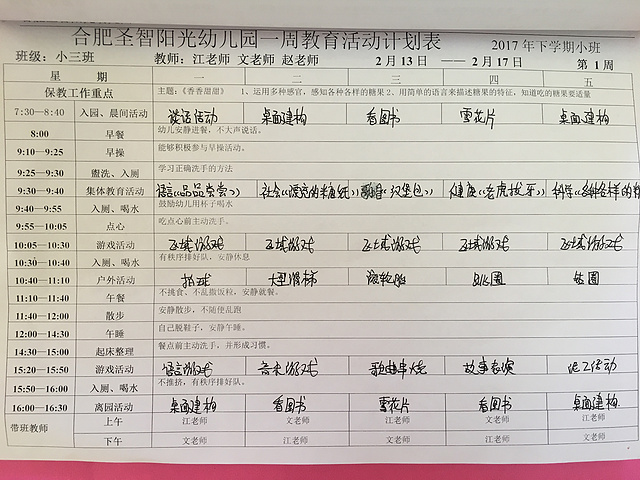 合肥圣智阳光幼儿园一周教育活动计划表
2017年下学期小班
班级：小三班 教师：江老师 文老师 赵老师 2月13日 ——2月17日 第1周
星期 一 二 三 四 五
保教工作重点 主题：《香香甜甜》 1、运用多种感官，感知各种各样的糖果2、用简单的语言来描述糖果的特征，知道吃的糖果要适量
7:30—8:40 入园、晨间活动 谈话活动 桌面建构 看图书 雪花片 桌面建构
8:00 早餐 幼儿安静进餐，不大声说话。
9:10—9:25 早操 能够积极参与早操活动。
9:25—9:30 盥洗、入厕 学习正确洗手的方法
9:30—9:40 集体教育活动 语言《品品尝尝》 社会《漂亮的糖纸》 歌唱《汉堡包》 健康《老虎拔牙》 科学《各种各样的糖
9:40—9:55 入厕、喝水 鼓励幼儿用杯子喝水
9:55—10:05 点心 吃点心前主动洗手。
10:05—10:30 游戏活动 区域游戏 区域游戏 区域游戏 区域游戏 区域游戏
10:30—10:40 入厕、喝水 有秩序排好队，安静休息
10:40—11:10 户外活动 拍球 大型滑梯
11:10—11:40 午餐 不挑食、不乱撒饭粒，安静就餐。
11:40—12:00 散步 安静散步，不随便乱跑
12:00—14:30 午睡 自己脱鞋子，安静午睡。
14:30—15:00 起床整理 餐点前主动洗手，并形成习惯。
15:20—15:50 游戏活动 语言游戏 音乐游戏 歌曲串烧 故事表演
15:50—16:00 入厕、喝水 不推挤，有秩序排好队。
16:00—16:30 离园活动 桌面建构 看图书 雪花片 看图书 桌面建构
带班教师 上午 江老师 文老师 江老师 文老师 江老师
下午 文老师 江老师 文老师 江老师 文老师